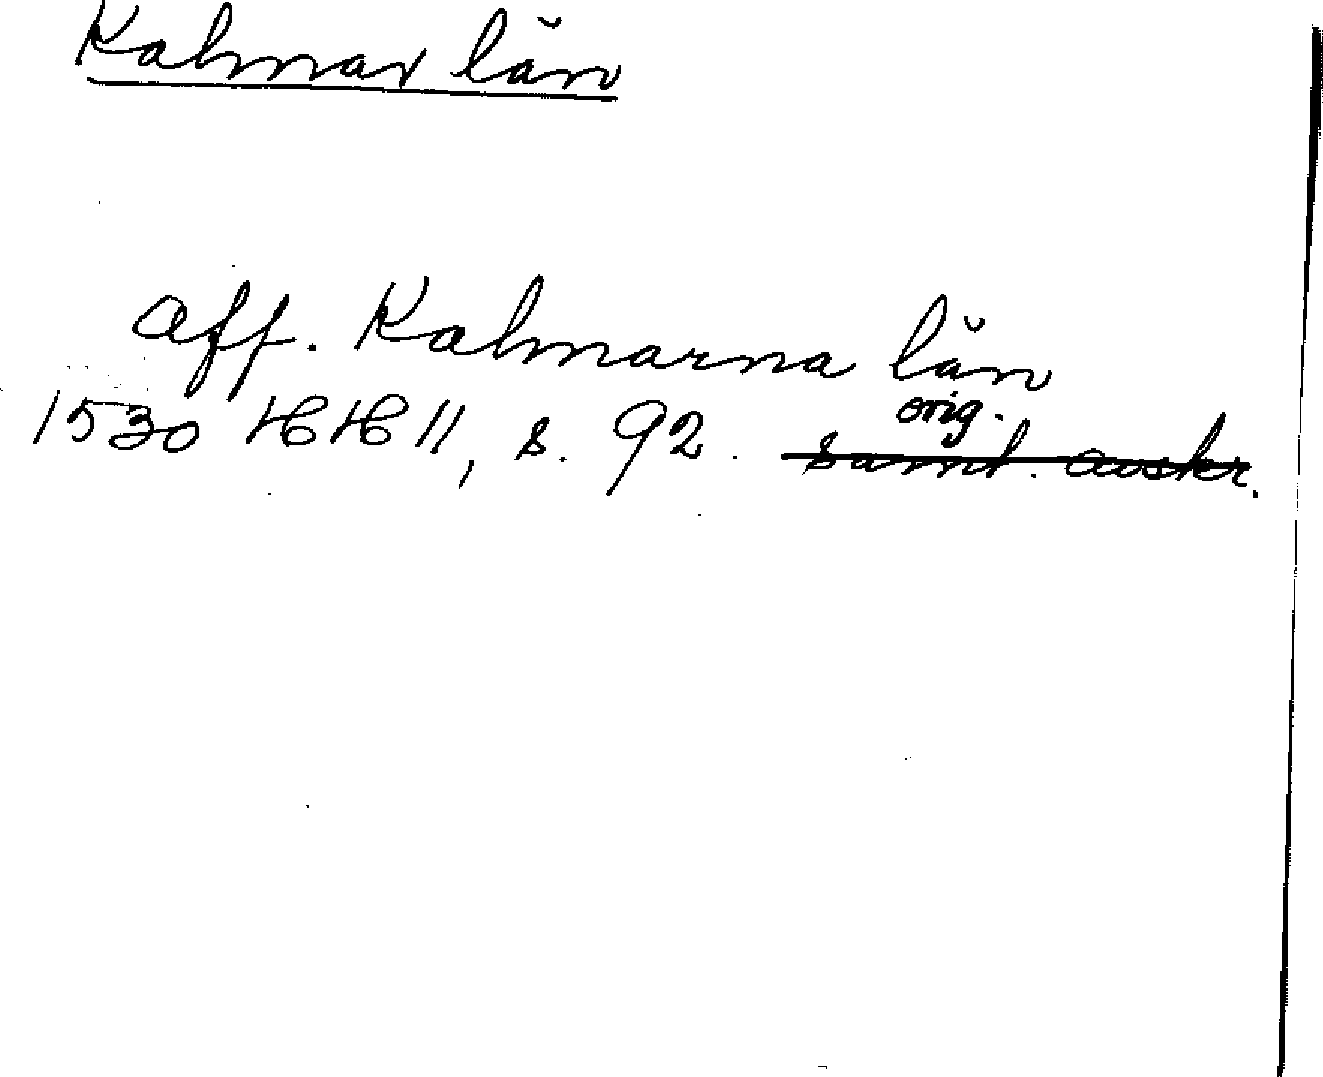 Kalmar län
aff. Kalmarna län
orig.
1530 HH 11, s. 92. samt. avskr.